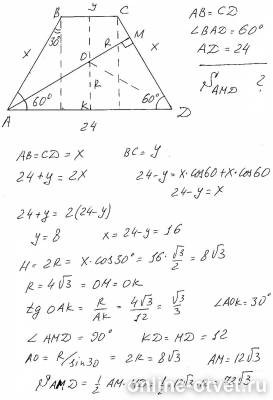 B y C
AB = CD
∠BAD = 60°
AD = 24
S AMD ?
x 30° R M x
O
R
60° 60°
A K D
24
AB = CD = x BC = y
24 + y = 2x 24 - y = x·cos60 + x·cos60
24 - y = x
24 + y = 2(24 - y)
y = 8 x = 24 - y = 16
H = 2R = x·cos30° = 16·√3/2 = 8√3
R = 4√3 = OM = OK
tg OAK = R/AK = 4√3/12 = √3/3 ∠AOK = 30°
∠AMD = 90° KD = MD = 12
AO = R/sin30 = 2R = 8√3 AM = 12√3
S AMD = 1/2 AM·MD = 1/2·12√3·12 = 72√3
online-otvet.ru